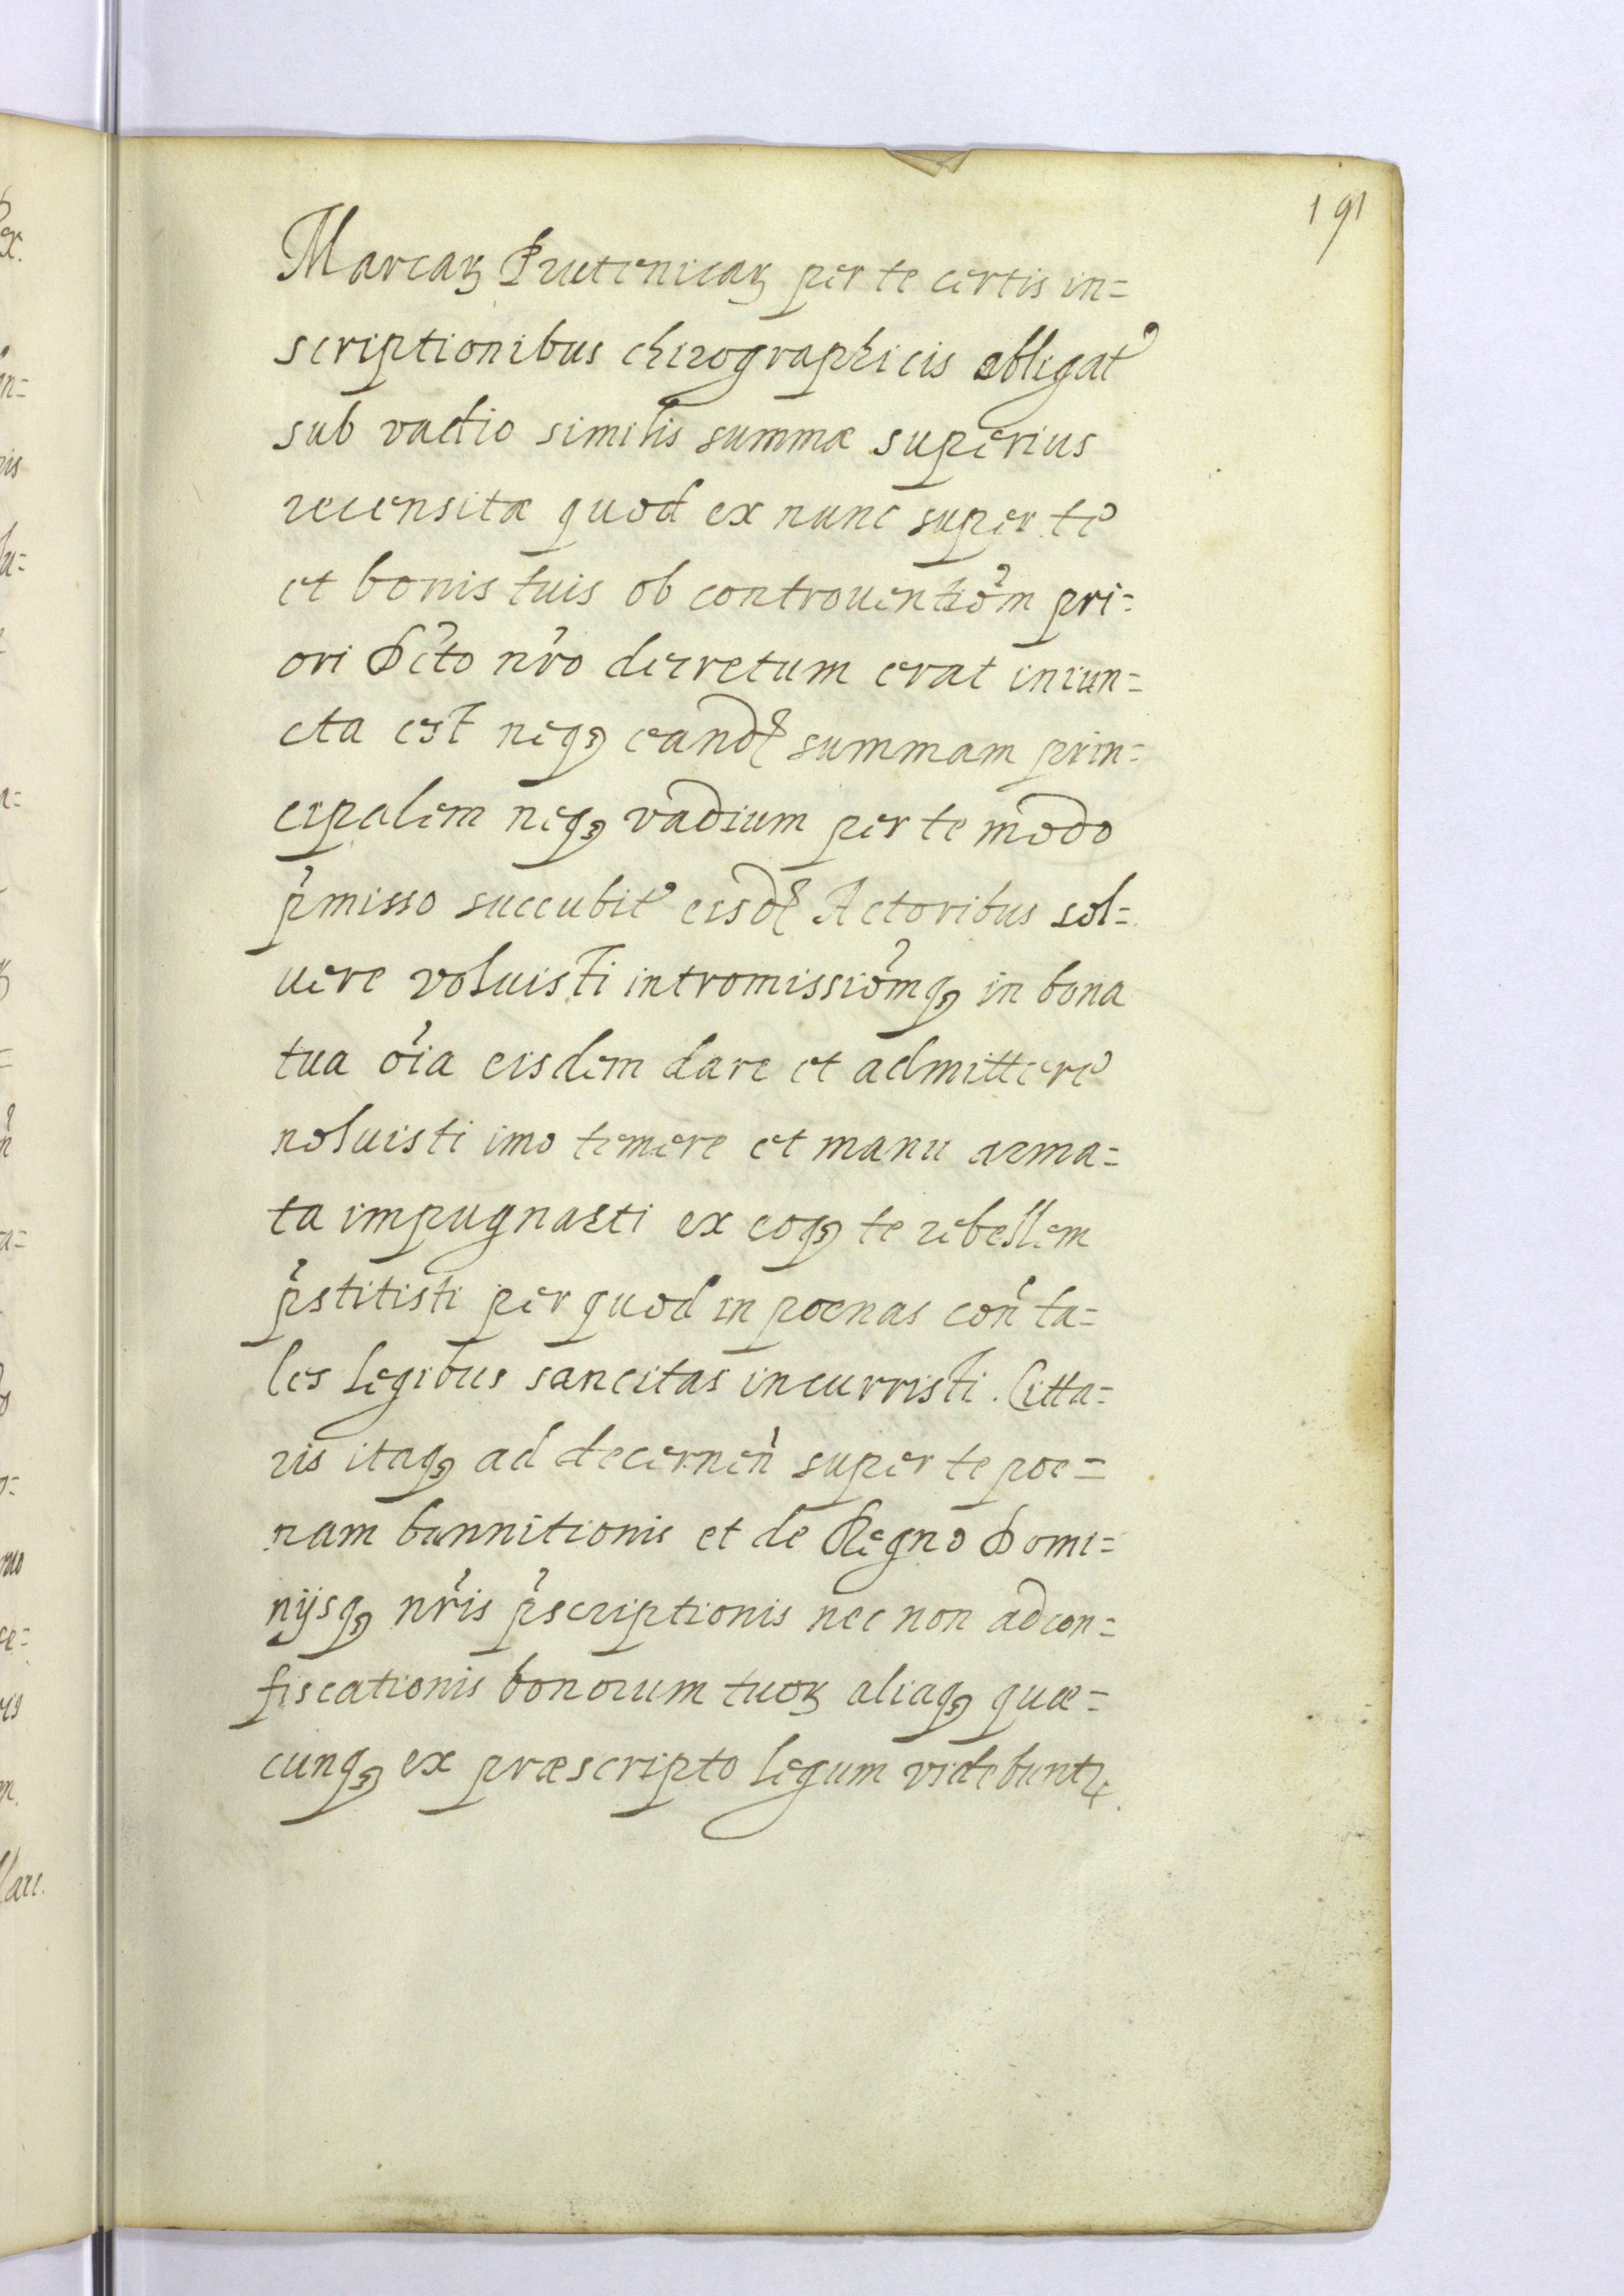 191
Marcaꝝ Prutenicaꝝ per te certis in=
scriptionibus chirographicis obligatꝰ
sub vadio similis summæ superius
recensitæ quod ex nunc super te
et bonis tuis ob controuentiõm pri=
ori Dcto nro decretum erat iniun=
cta est neqꝫ eand summam prin=
cipalem neqꝫ vadium per te modo
pmisso succubitꝰ eisd Actoribus sol=
uere voluisti intromissiõmqꝫ in bona
tua oia eisdem dare et admittere
noluisti imo temere et manu arma=
ta impugnasti ex eoqꝫ te rebellem
pstitisti per quod in poenas con ta=
les legibus sancitas incurristi. Citta=
ris itaqꝫ ad decernen super te poe=
nam bannitionis et de Regno Domi=
nijsqꝫ nris pscriptionis nec non ad con=
fiscationis bonorum tuoꝝ aliaqꝫ quæ=
cunqꝫ ex præscripto legum videbuntꝛ.